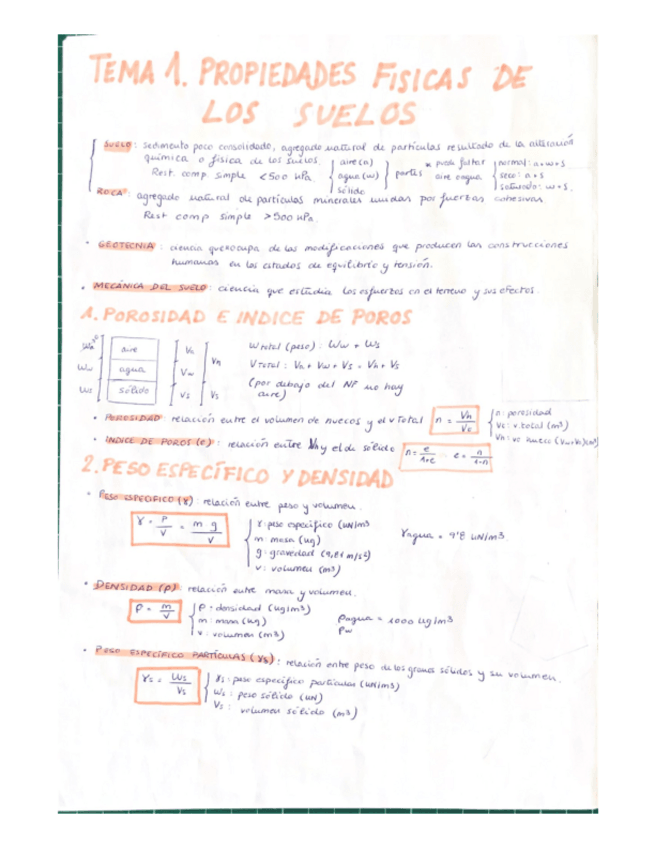 TEMA 1. PROPIEDADES FISICAS DE
LOS SUELOS
SUELO: sedimento poco consolidado, agregado natural de particulas resultado de la alteración
química o física de los suelos.
Rest. comp. simple < 500 kPa.
aire (a)
agua (w)
sólido
partes
* puede faltar
aire o agua
normal: a+w+s
seco: a+s
saturado: w+s.
ROCA: agregado natural de particulas minerales unidas por fuerzas cohesivas.
Rest comp simple > 500 kPa.
· GEOTECNIA: ciencia que se ocupa de las modificaciones que producen las construcciones
humanas en los estados de equilibrio y tensión.
· MECÁNICA DEL SUELO: ciencia que estudia los esfuerzos en el terreno y sus efectos.
1. POROSIDAD E INDICE DE POROS
Ww
Ws
aire
agua
sólido
Va
Vw
Vs
Vh
Vs
W total (peso): Ww + Ws
V Total: Va + Vw + Vs = Vh + Vs
(por debajo del NF no hay
aire)
· POROSIDAD: relación entre el volumen de huecos y el v Total
n = Vh / Vt
n: porosidad
Vt: v. total (m³)
· INDICE DE POROS (e): relación entre Vh y el de sólido
n = e / 1+e
e = n / 1-n
2. PESO ESPECÍFICO Y DENSIDAD
· PESO ESPECIFICO (γ): relación entre peso y volumen.
γ = P / V = m g / V
γ: peso específico (kN/m³
m: masa (kg)
g: gravedad (9,81 m/s²)
v: volumen (m³)
γagua = 9'8 kN/m³.
· DENSIDAD (ρ) relación entre masa y volumen.
ρ = m / V
ρ: densidad (kg/m³)
m: masa (kg)
v: volumen (m³)
ρagua = 1000 kg/m³
ρw
· PESO ESPECÍFICO PARTÍCULAS (γs): relación entre peso de los granos sólidos y su volumen.
γs = Ws / Vs
γs: peso específico partículas (kN/m³)
Ws: peso sólido (kN)
Vs: volumen sólido (m³)